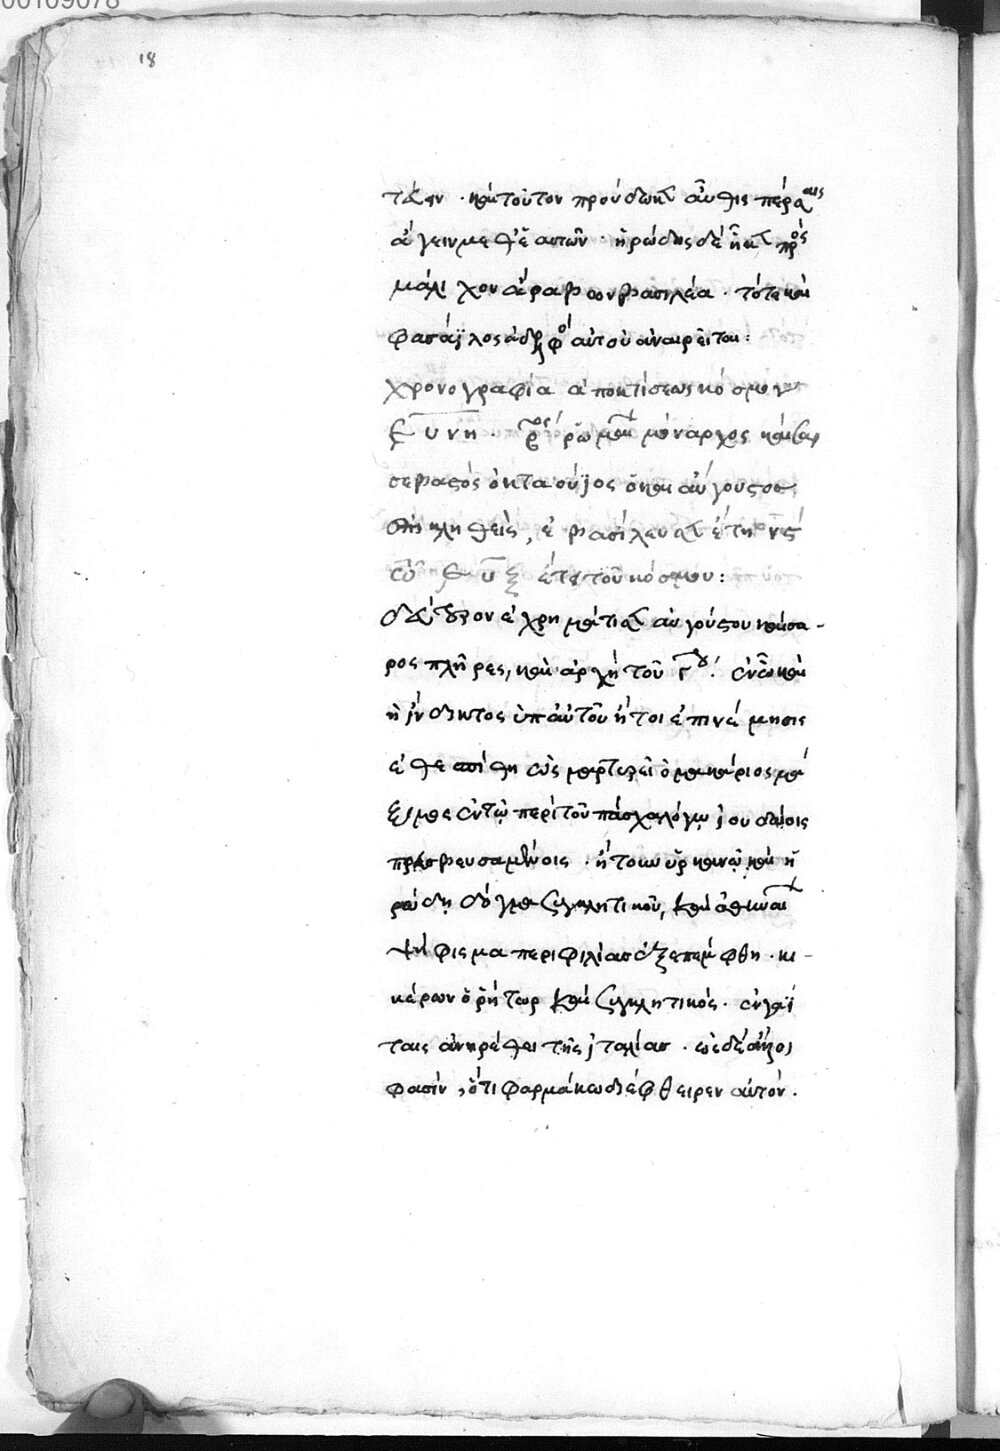 18
τάξιν · καὶ τοῦτον προύδωκεν αὖθις πέρσαις
ἄγειν μεθ' ἑαυτῶν · ἡρώδης δὲ ἧκε πρὸς
μάλιχον ἀράβων βασιλέα · τότε καὶ
φασάϊλος ἀδελφὸς αὐτοῦ ἀναιρεῖται:
χρονογραφία ἀπὸ κτίσεως κόσμου
ευνη · ῥωμαίων μόναρχος καῖσαρ
σεβαστὸς ὀκτάουϊος ὁ καὶ αὔγουστος
ἐπικληθεὶς, ἐβασίλευσεν ἔτη νς
ἔτει τοῦ κόσμου:
δεύτερον ἐχρημάτισεν αὐγούστου καίσα-
ρος πλῆρες, καὶ ἀρχὴ τοῦ γου. ἐν ᾧ καὶ
ἡ ἴνδικτος ὑπ' αὐτοῦ ἤτοι ἐπινέμησις
ἐθεσπίσθη ὡς μαρτυρεῖ ὁ μακάριος μά
ξιμος ἐν τῷ περὶ τοῦ πάσχα λόγῳ ἰουδαίοις
πρεσβευσαμένοις · ἤτοι ὑρκανῷ καὶ ἡ
ρώδῃ δόγμα συγκλητικοῦ, καὶ ἀθηναίων
ψήφισμα περὶ φιλίας ἐξεπέμφθη · κι-
κέρων ὁ ῥήτωρ καὶ συγκλητικός · ἐν γαΐ
ταις ἀνῃρέθει τῆς ἰταλίας · ὡς δὲ ἄλλοι
φασὶν, ὅτι φαρμάκω διέφθειρεν αὐτόν .